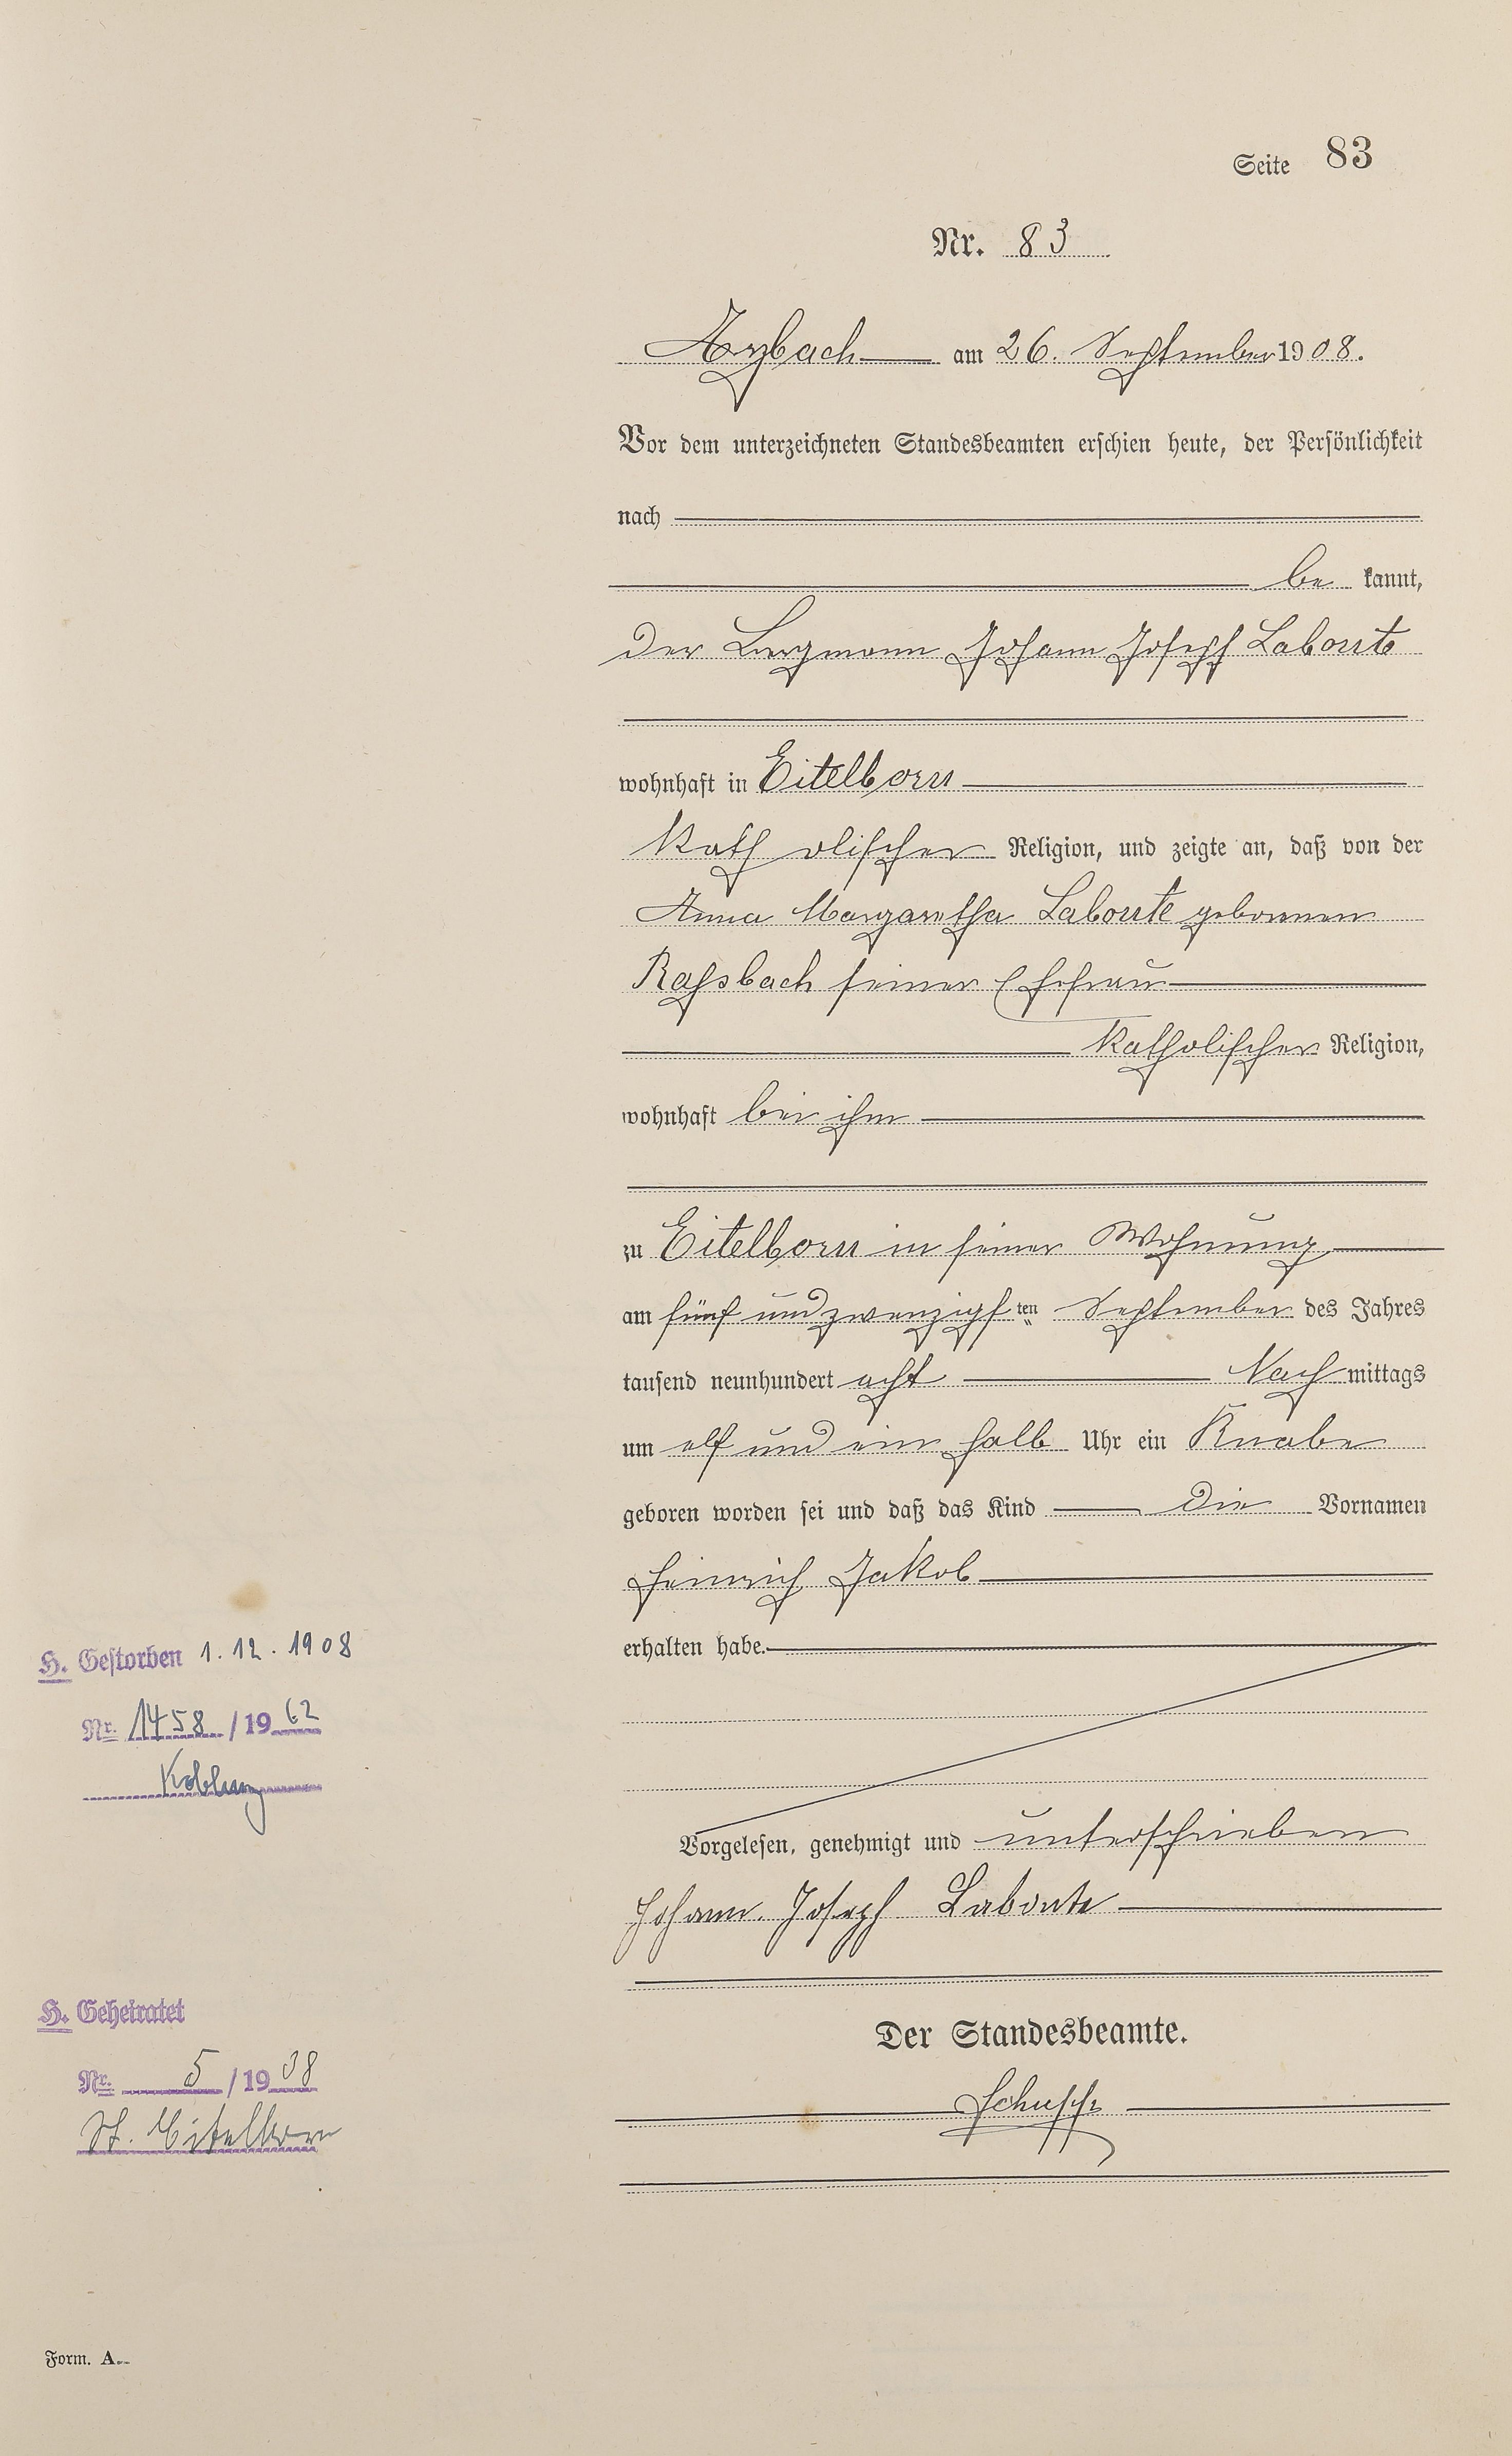 Seite 83
Nr. 83
Arzbach am 26. September 1908.
Vor dem unterzeichneten Standesbeamten erschien heute, der Persönlichkeit
nach
be kannt,
der Bergmann Johann Joseph Labonte
wohnhaft in Eitelborn
kath olischer Religion, und zeigte an, daß von der
Anna Margaretha Labonte geborenen
seiner Ehefrau
katholischer Religion,
wohnhaft bei ihm
zu Eitelborn in seiner Wohnung
am fünf und zwanzigsten September des Jahres
tausend neunhundert acht Nach mittags
um elf und ein halb Uhr ein Knabe
geboren worden sei und daß das Kind die Vornamen
Heinrich Jakob
erhalten habe.
Vorgelesen, genehmigt und unterschrieben
Johann Joseph Labonte
Der Standesbeamte.
H. Gestorben 1.12.1908
Nr. 1458 / 1962
Koblenz
H. Geheiratet
Nr. 5 / 1938
St. Eitelborn
Form. A.